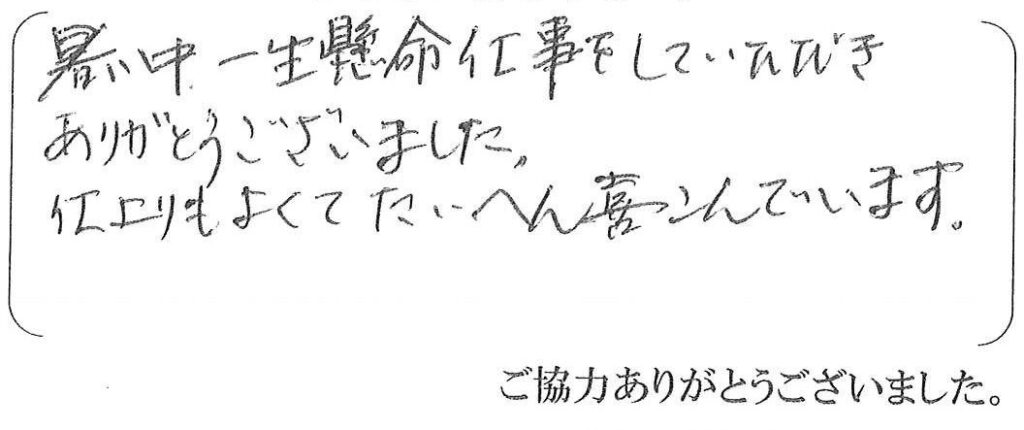 暑い中一生懸命仕事をしていただき
ありがとうございました。
仕上りもよくてたいへん喜こんでいます。
ご協力ありがとうございました。